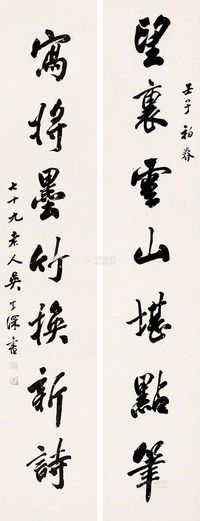 壬子初春
望裏雲山堪點筆
寫將墨竹換新詩
七十九老人吳子深書